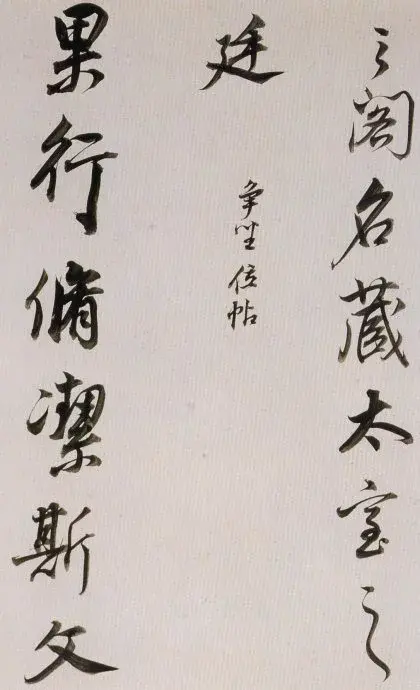 之阁名藏太室之
廷
争坐位帖
果行脩潔斯文